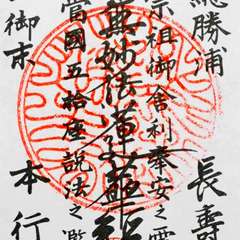 總勝浦 長壽
宗祖御舎利奉安之靈
無妙法蓮華經
當國五拾座説法之濫
御末 本行